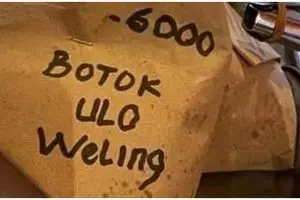 -6000
BOTOK
ULO
Weling